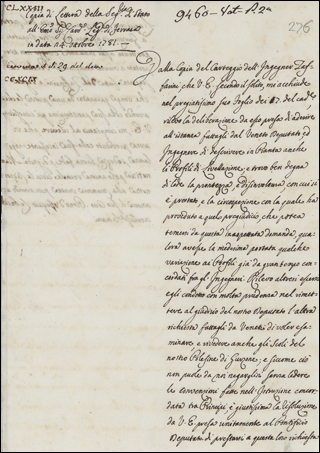 CLXXIII
9460 - Vat - P. 2a
276
Copia di Lettera della Seg.ria di Stato
all'Emo Sig. Card. Leg.to di Ferrara
in data 24. 1781
CCXCIX
Dalla Copia del Carteggio dell'Ingegner
che V. E. secondo il solito, mi acchiude
nel pregiatissimo suo Foglio dei 17. del
rilevo la deliberazione da esso presa di aderire
all'istanza fattagli dal Veneto Deputato ed
Ingegnere di descrivere in Pianta anche
i Profili di Livellazione, e trovo ben degna
di lode la prontezza, e disinvoltura con cui si
è prestato, e la circospezione con la quale ha
proveduto a quel pregiudizio che potea
temersi da questa inaspettata domanda, qua-
lora avesse la medesima portata qualche
variazione ai Profili già da gran tempo con-
cordati fra gl'Ingegneri. Rilevo altresì essersi
egli condotto con molta prudenza nel rimet-
tere al giudizio del nostro Deputato l'altra
richiesta fattagli da Veneti di voler esa-
minare, e rivedere anche gli Scoli del
nostro Polesine di e siccome ciò
non puole da noi negarglisi senza ledere
le convenzioni fatte nell'Istruzione concor-
data tra Principi, è giustissima la risoluzione
da V. E. presa unitamente al Pontificio
Deputato di prestarsi a questa loro richiesta